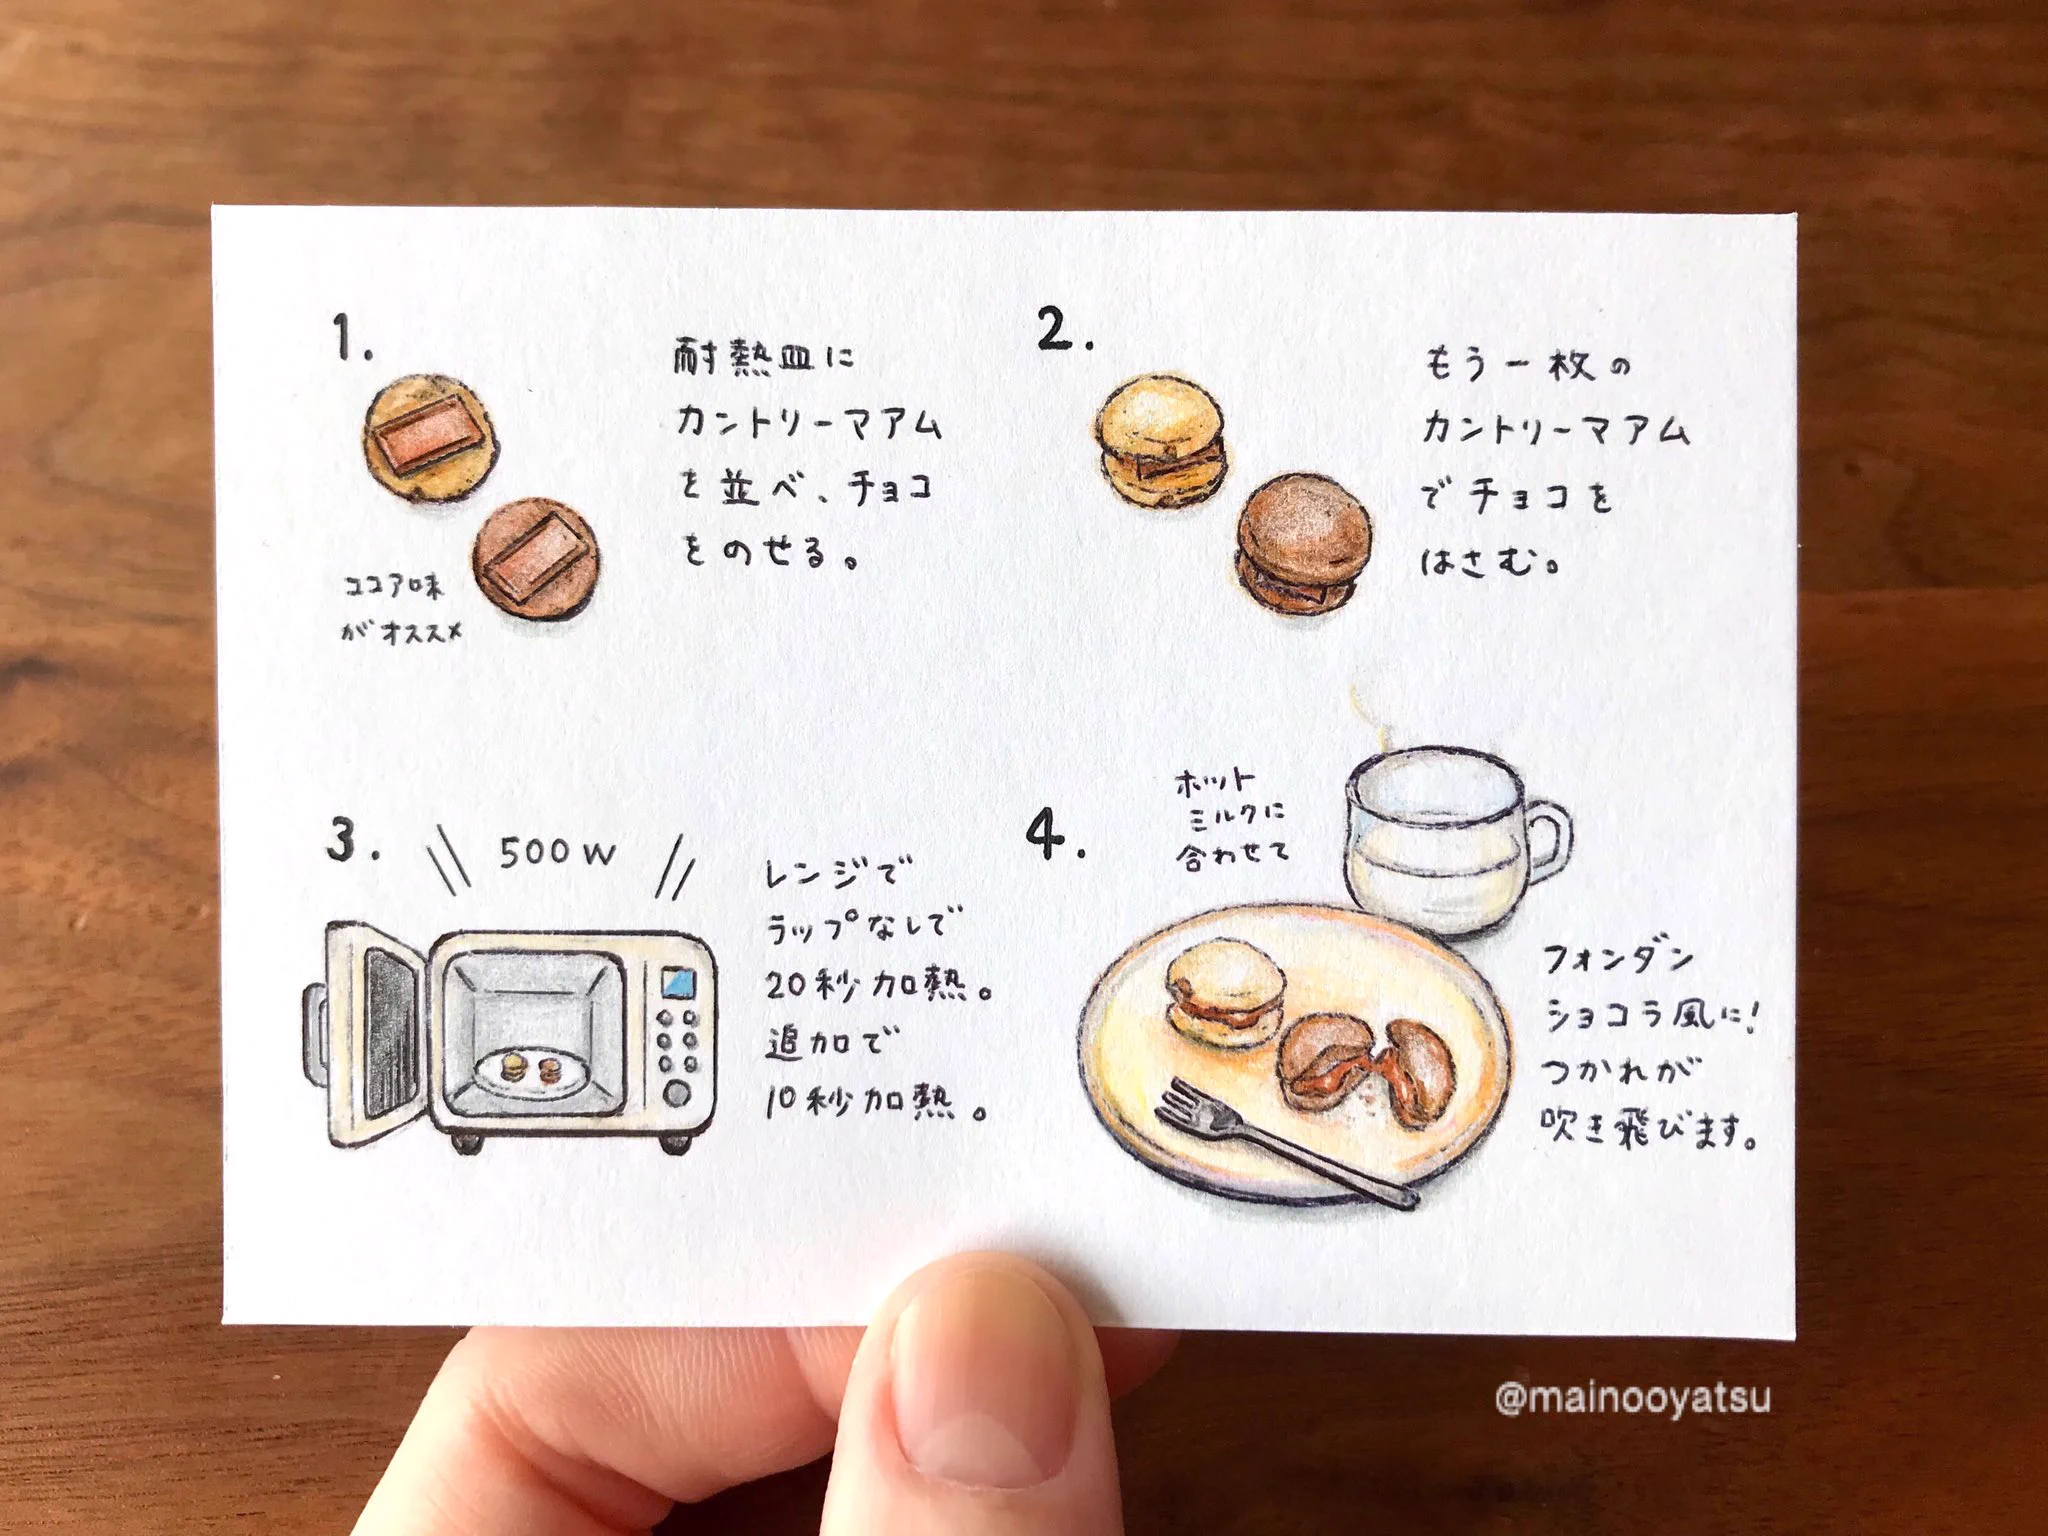 1.
耐熱皿に
カントリーマアム
を並べ、チョコ
をのせる。
ココア味
がオススメ
2.
もう一枚の
カントリーマアム
でチョコを
はさむ。
3.
500W
レンジで
ラップなしで
20秒加熱。
追加で
10秒加熱。
4.
ホット
ミルクに
合わせて
フォンダン
ショコラ風に!
つかれが
吹き飛びます。
@mainooyatsu